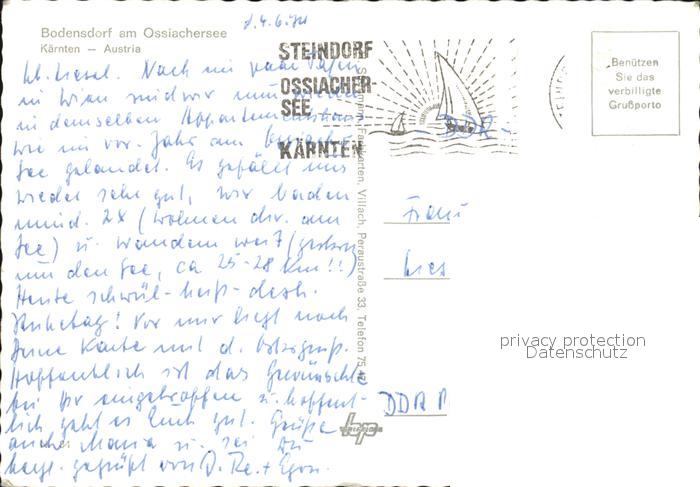 d. 4.6.
Bodensdorf am Ossiachersee
Kärnten — Austria
STEINDORF
OSSIACHER-
SEE
KÄRNTEN
Benützen
Sie das
verbilligte
Grußporto
lb. Liesel. Nach ein paar Tagen
in Wien sind wir nun wieder
in demselben Appartementhaus
wie im vor. Jahr am Ossiacher
See gelandet. Es gefällt uns
wieder sehr gut, wir baden
mind. 2x (wohnen dir. am
See) u. wandern (gestern
um den See, ca 25-28 km!!)
Heute schwül-heiß-desh.
Ruhetag! Vor mir liegt noch
Deine Karte mit d.
Hoffentlich ist das Gewünschte
bei Dir eingetroffen u. hoffent-
lich geht es Euch gut. Grüße
auch Maria u. sei Du
herzl. gegrüßt von D. Re. + Egon.
Farbkarten, Villach, Peraustraße 33, Telefon 75
-DDR-
Frau
Lies
DDR
privacy protection
Datenschutz